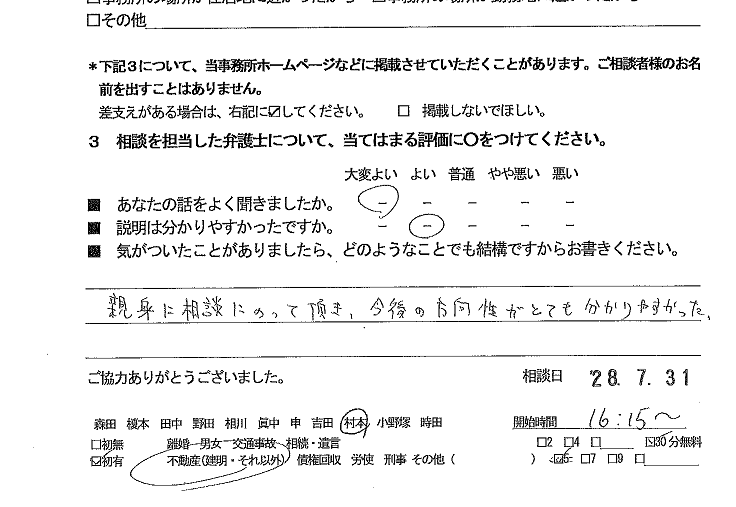 □その他
＊下記3について、当事務所ホームページなどに掲載させていただくことがあります。ご相談者様のお名
前を出すことはありません。
差支えがある場合は、右記に☑してください。　□ 掲載しないでほしい。
3　相談を担当した弁護士について、当てはまる評価に〇をつけてください。
大変よい　よい　普通　やや悪い　悪い
■ あなたの話をよく聞きましたか。　－　－　－　－　－
■ 説明は分かりやすかったですか。　－　－　－　－　－
■ 気がついたことがありましたら、どのようなことでも結構ですからお書きください。
親身に相談にのって頂き、今後の方向性がとても分かりやすかった。
ご協力ありがとうございました。　相談日　28. 7. 31
森田　榎本　田中　野田　相川　眞中　申　吉田　村本　小野塚　時田　開始時間　16:15～
□初無　離婚　男女　交通事故　相続・遺言　□2 □4 □　☑30分無料
☑初有　不動産(建明・それ以外)　債権回収　労使　刑事　その他（　　）　☑5 □7 □9 □